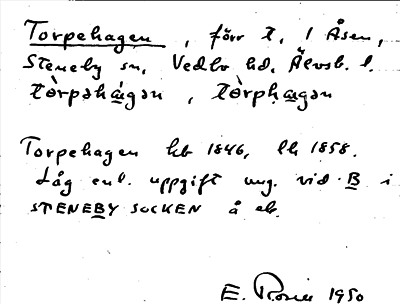 Torpehagen, förr t. l Åsen,
Steneby sn, Vedbo hd, Älvsb. l.
tòrpəhágən, tòrphagən
Torpehagen hb 1846, lh 1858.
Låg enl. uppgift ung. vid B i
STENEBY SOCKEN å ek.
E. Rosén 1950